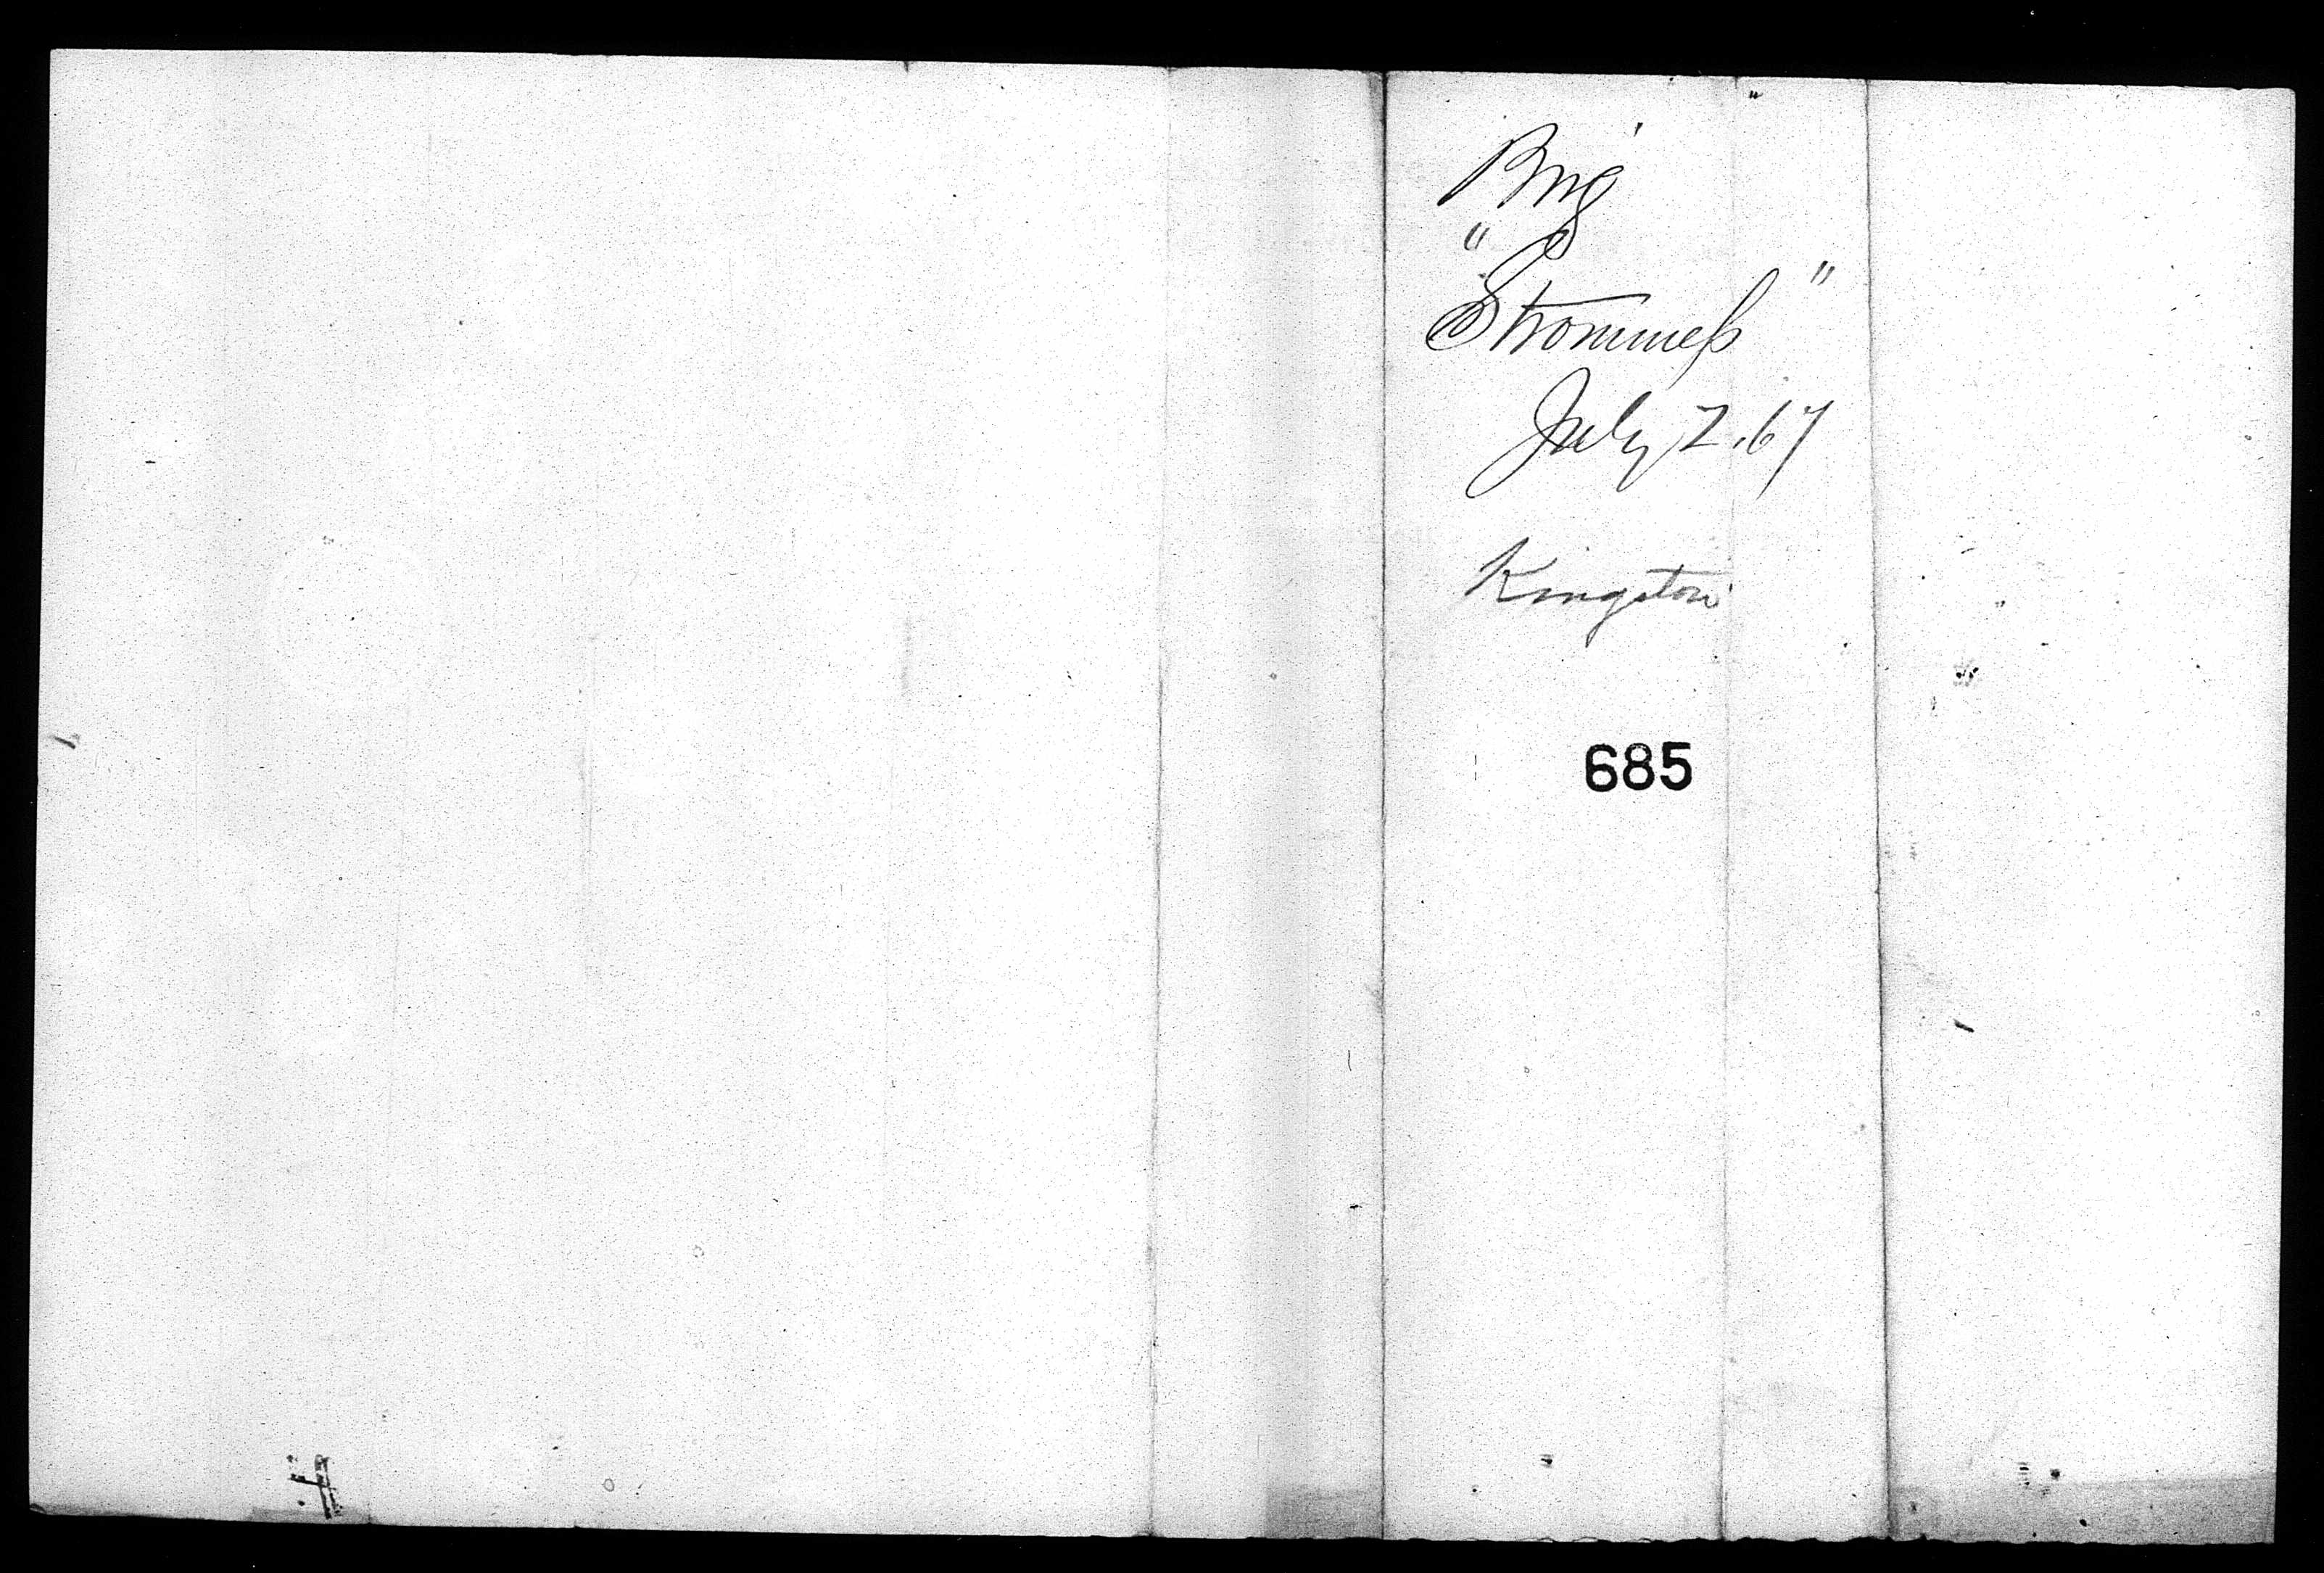 Brig
"Strommess"
July 2. 67
Kingston
685